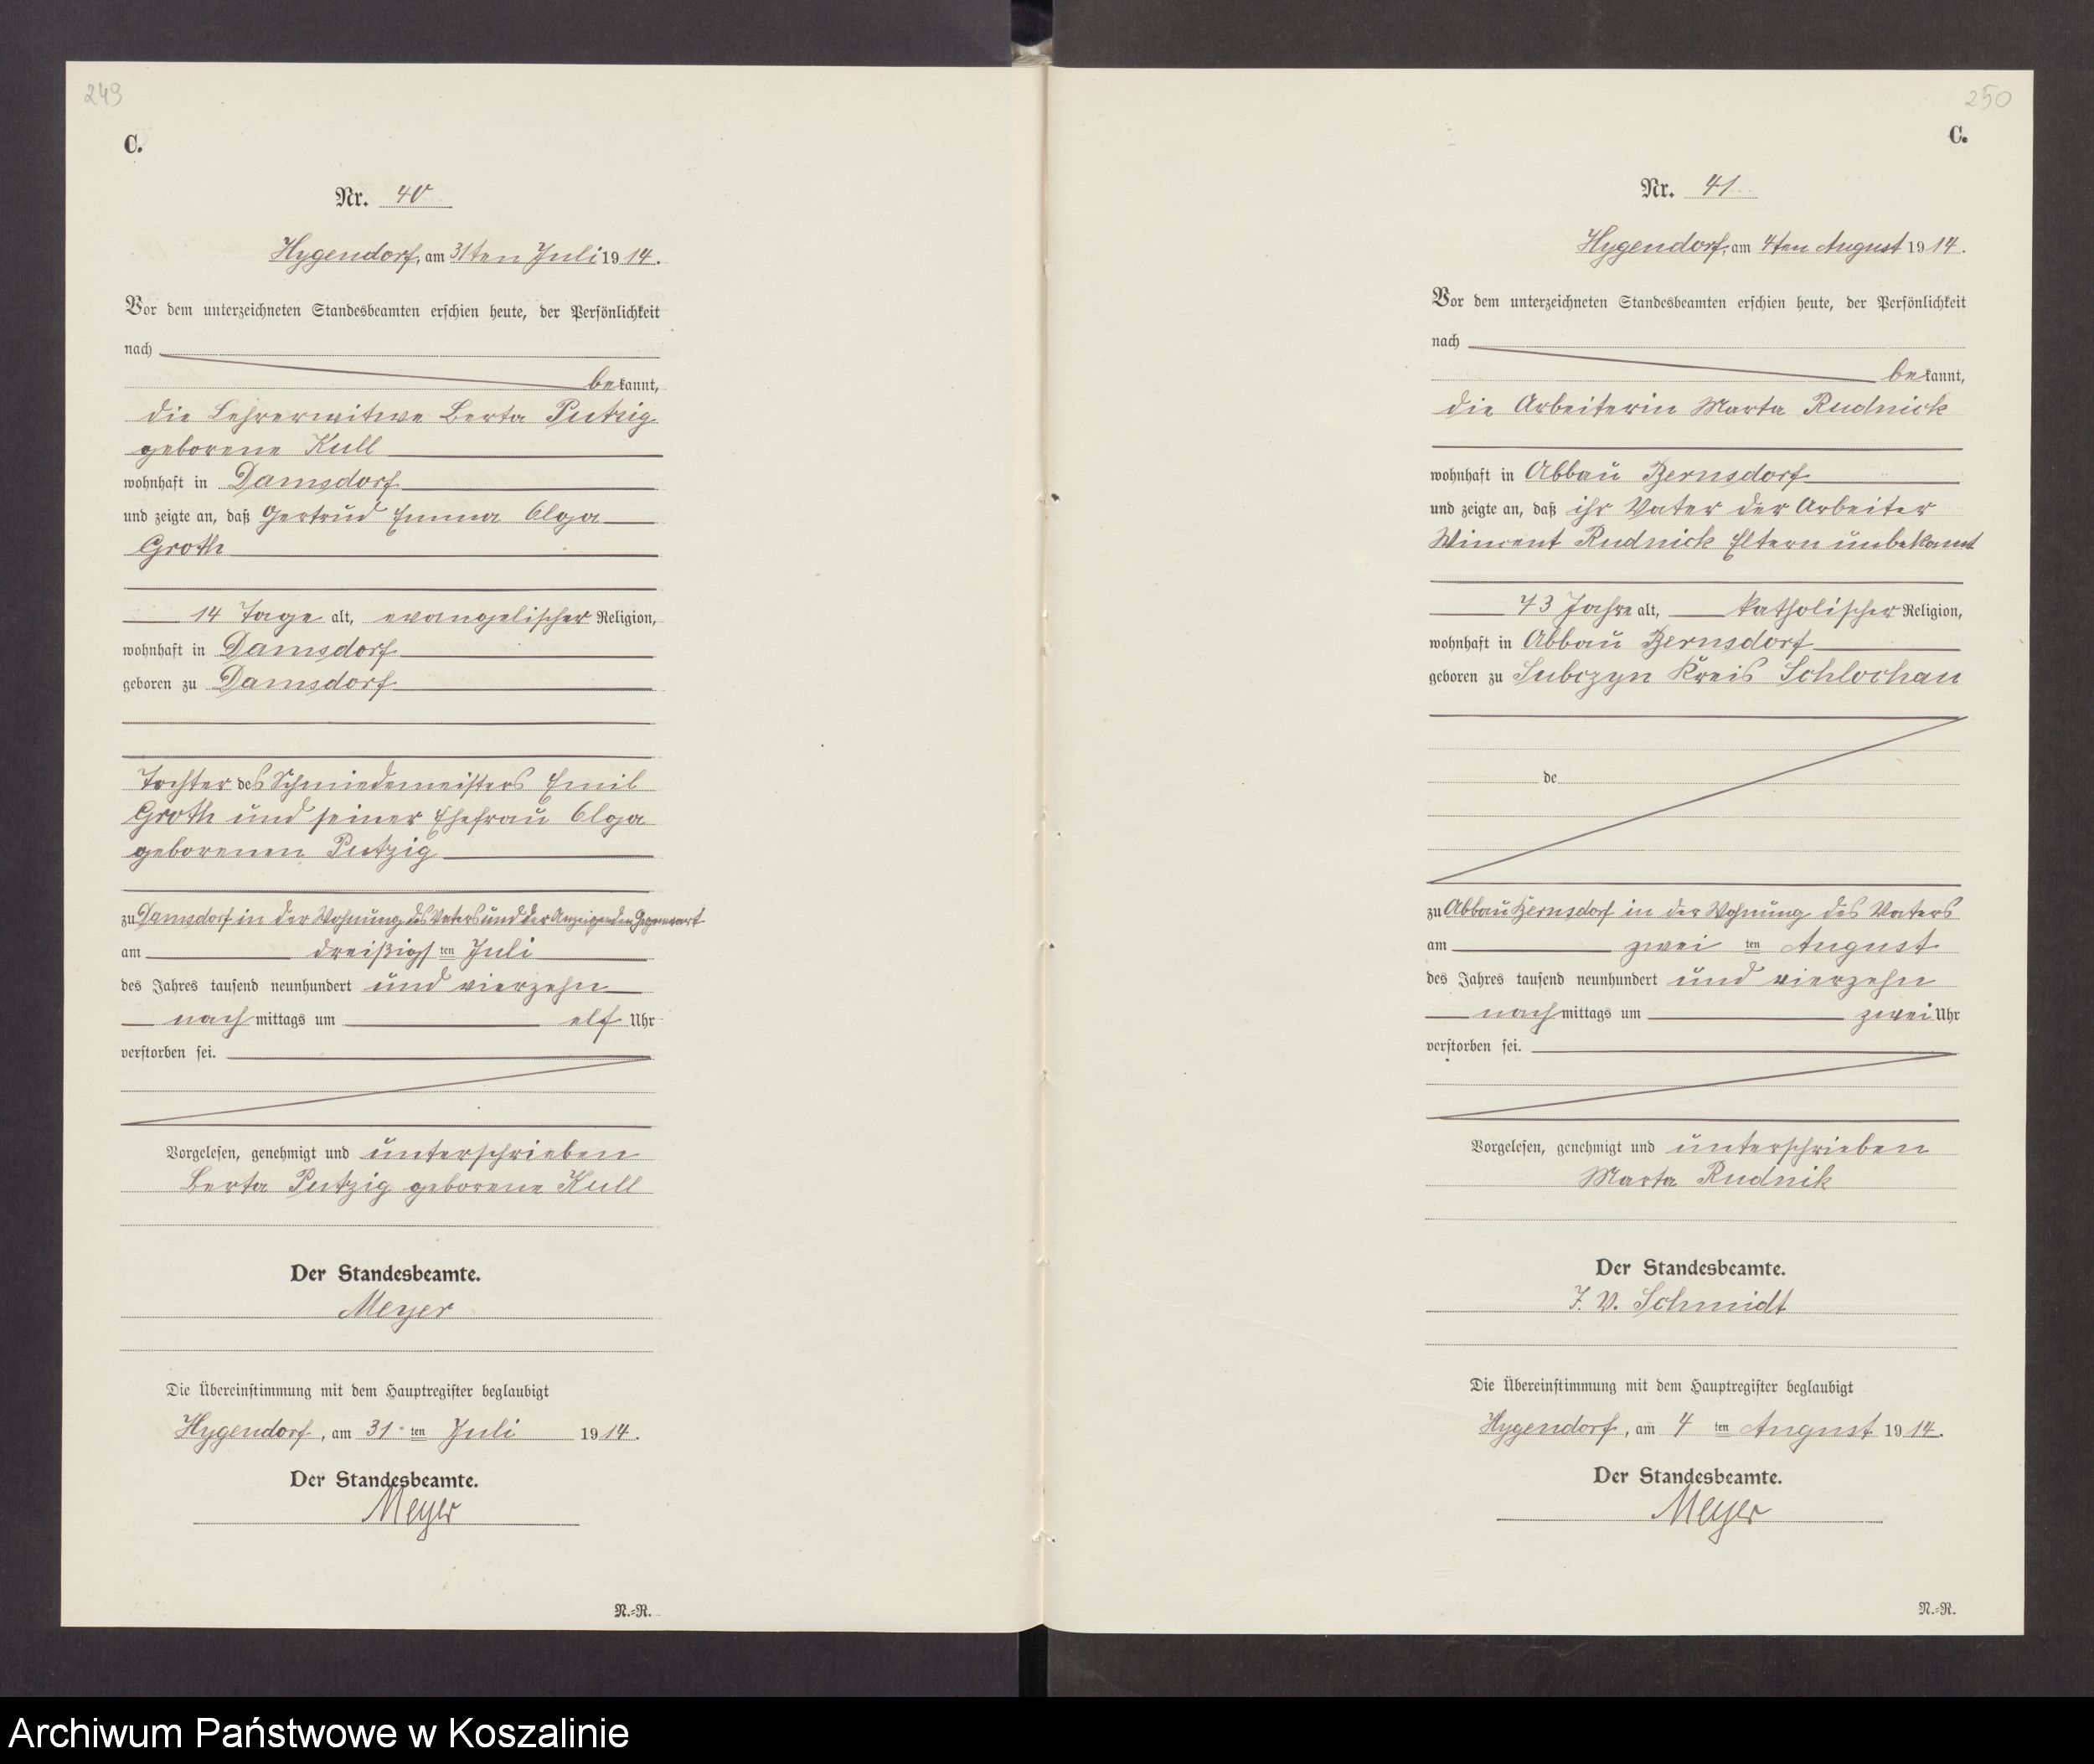 249
C.
Nr. 40
Hygendorf, am 31ten Juli 1914.
Vor dem unterzeichneten Standesbeamten erschien heute, der Persönlichkeit
nach
bekannt,
die Lehrerwitwe Berta Putzig
geborene Kull
wohnhaft in Damsdorf
und zeigte an, daß Gertrud Emma Olga
Groth
14 Tage alt, evangelischer Religion,
wohnhaft in Damsdorf
geboren zu Damsdorf
Tochter des Schmiedemeisters Emil
Groth und seiner Ehefrau Olga
geborenen Putzig
zu Damsdorf in der Wohnung des Vaters und der Anzeigenden Gegenwart
am dreißigsten Juli
des Jahres tausend neunhundert und vierzehn
nachmittags um elf Uhr
verstorben sei.
Vorgelesen, genehmigt und unterschrieben
Berta Putzig geborene Kull
Der Standesbeamte.
Meyer
Die Übereinstimmung mit dem Hauptregister beglaubigt
Hygendorf, am 31.ten Juli 1914.
Der Standesbeamte.
Meyer
N.-R.
250
C.
Nr. 41
Hygendorf, am 4ten August 1914.
Vor dem unterzeichneten Standesbeamten erschien heute, der Persönlichkeit
nach
bekannt,
die Arbeiterin Marta Rudnick
wohnhaft in Abbau Bernsdorf
und zeigte an, daß ihr Vater der Arbeiter
Wincent Rudnick Eltern unbekannt
73 Jahre alt, katholischer Religion,
wohnhaft in Abbau Bernsdorf
geboren zu Lubczyn Kreis Schlochau
de
zu Abbau Bernsdorf in der Wohnung des Vaters
am zwei ten August
des Jahres tausend neunhundert und vierzehn
nachmittags um zwei Uhr
verstorben sei.
Vorgelesen, genehmigt und unterschrieben
Marta Rudnik
Der Standesbeamte.
J. V. Schmidt
Die Übereinstimmung mit dem Hauptregister beglaubigt
Hygendorf, am 4 ten August 1914.
Der Standesbeamte.
Meyer
N.-R.
Archiwum Państwowe w Koszalinie